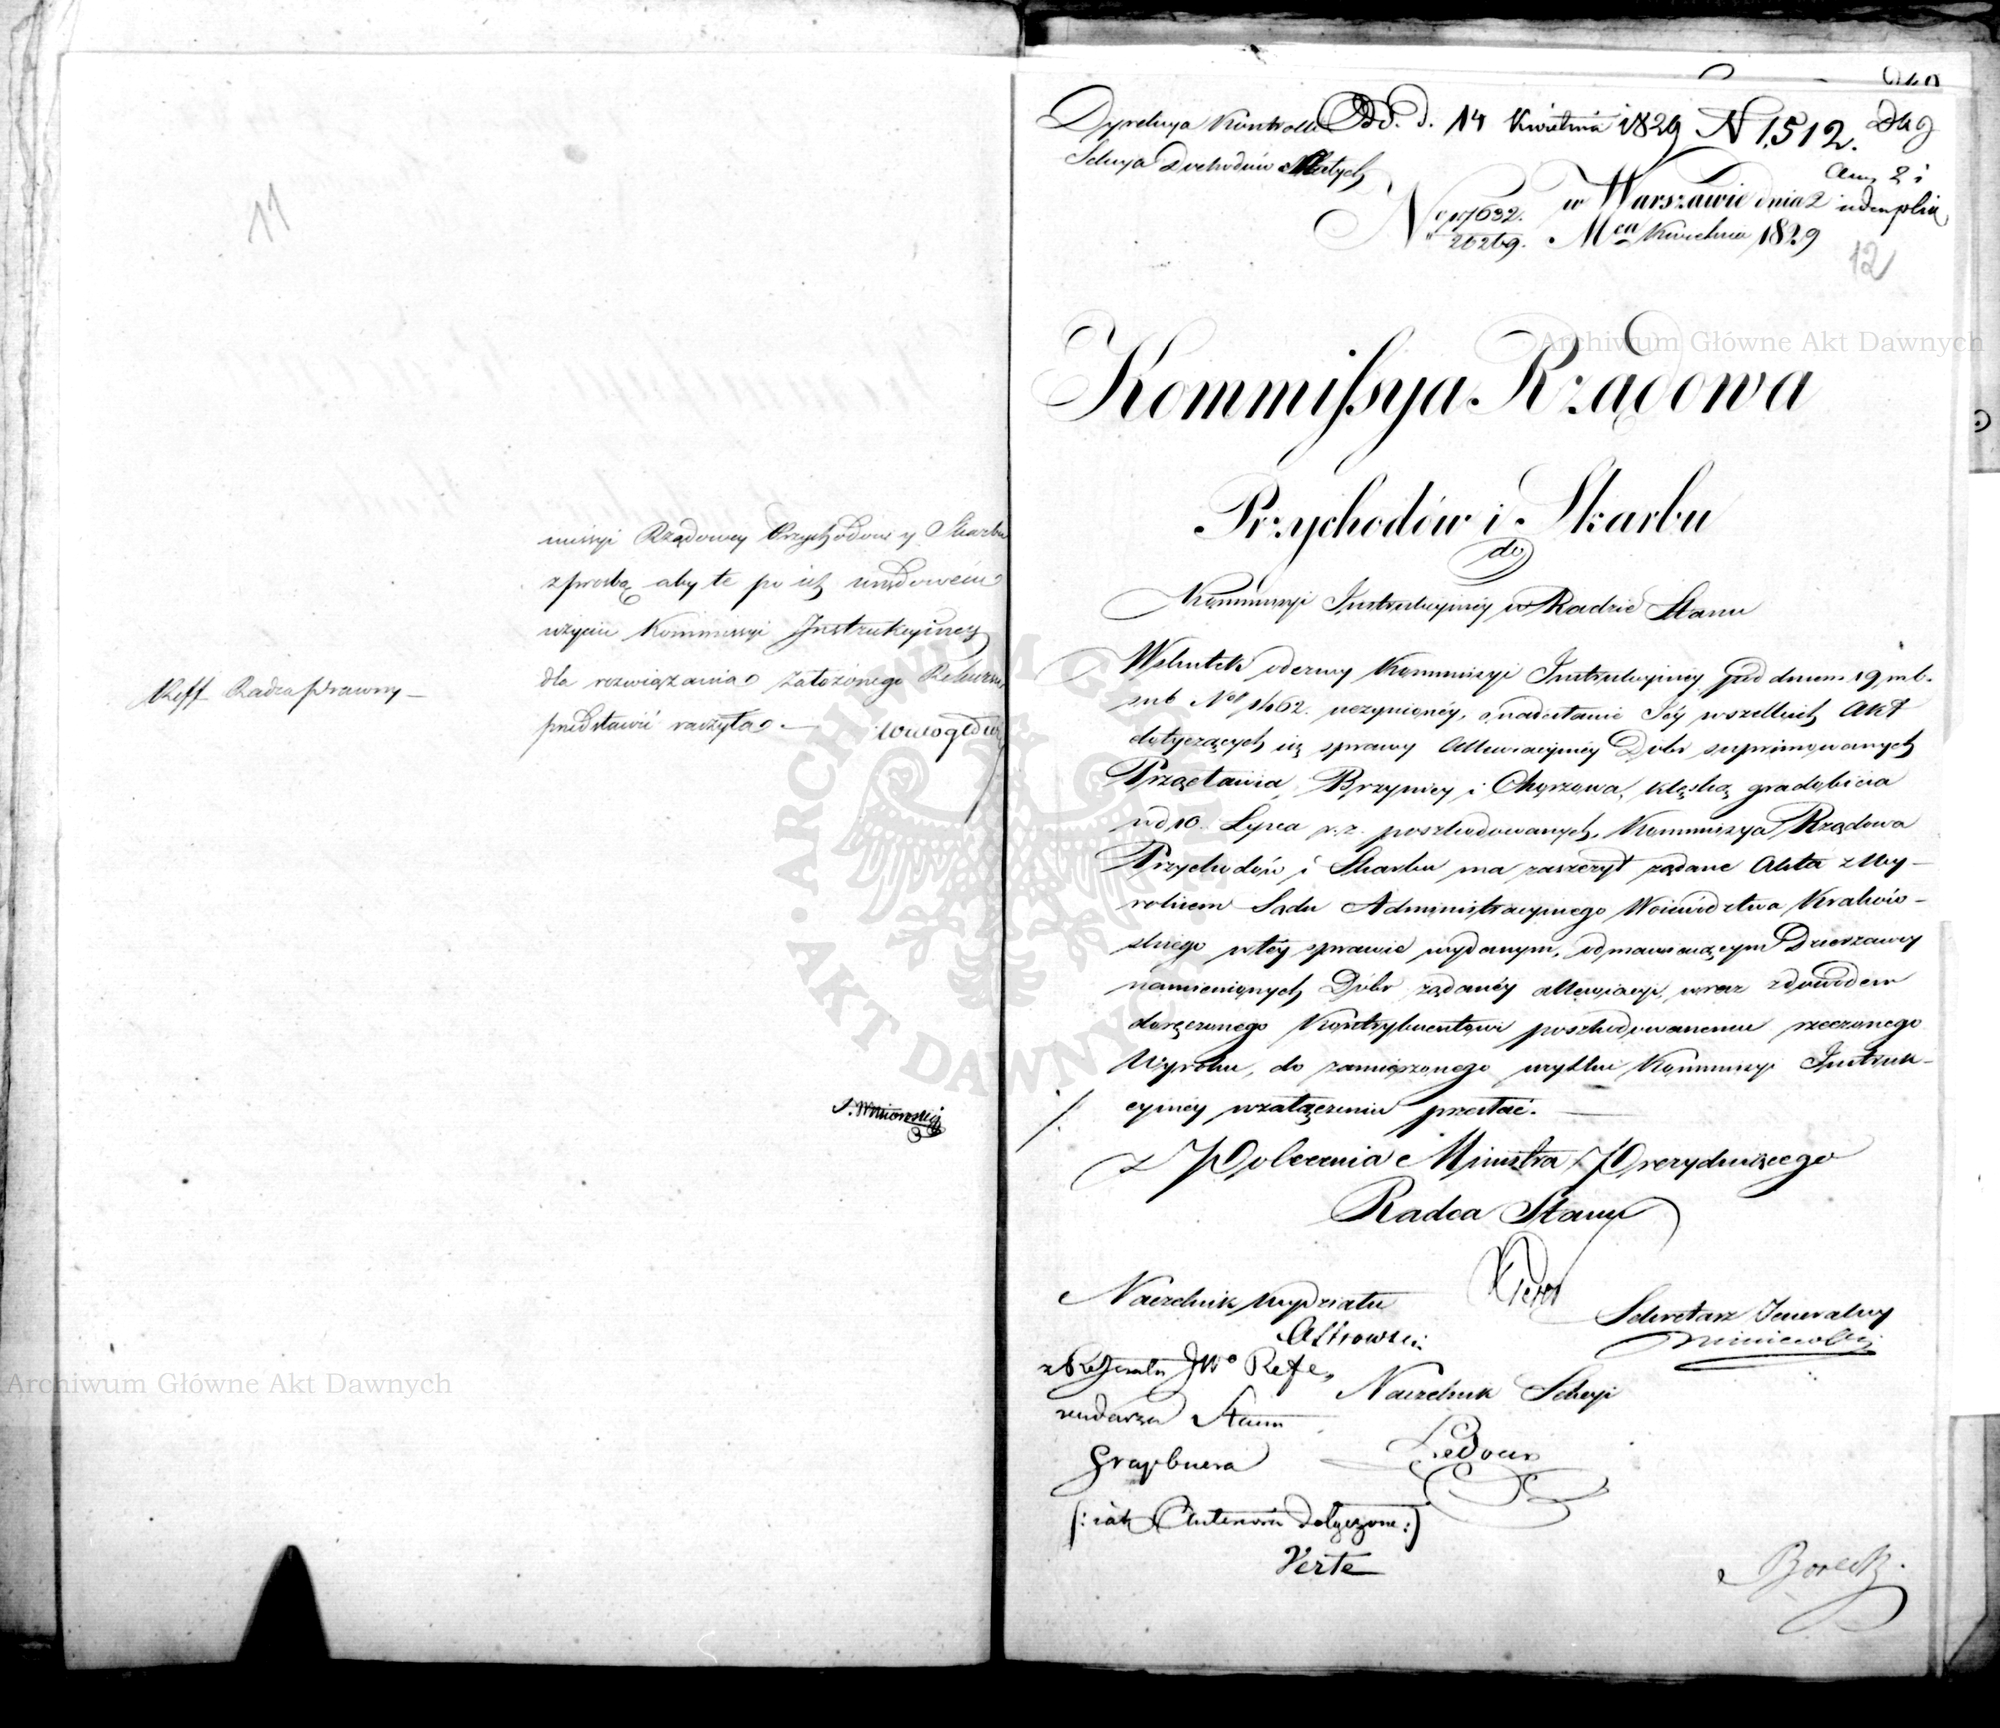 11
missyi Rządowey Przychodow y Skarbu
z prośbą aby te po ich urzędowem
użyciu Kommissyi Instrukcyiney
dla rozwiązania założonego Rekursu
przedstawić raczyła.—
Reff Radca prawny —
Dyrekcya Kontroll Od. d. 14 Kwietnia 1829 N 1,512.
Sekcya Dochodów Stałych
w Warszawie dnia 2
N 17632. / 20269. Mca Kwietnia 1829
12
Kommissya Rządowa
Przychodów i Skarbu
do
Kommissyi Instrukcyinéy w Radzie Stanu
Wskutek odezwy Kommissyi Instrukcyinéy pod dniem 19 m. b.
sub Nro 1462. uczynionéy, o nadesłanie Jéy wszelkich Akt
dotyczących się sprawy Allewiacyinéy Dóbr suprimowanych
Przęsławia, Brzynicy i Chorzowa, klęską gradobicia
w d 10. Lipca r. z. poszkodowanych, Kommissya Rządowa
Przychodów i Skarbu ma zaszczyt żądane Akta z Wy-
rokiem Sądu Administracyinego Województwa Krakow-
skiego w téy sprawie wydanym, odmawiaiącym Dzierżawcy
namienionych Dóbr żądanéy allewiacyi, wraz z dowodem
doręczonego Kontrybuentowi poszkodowanemu rzeczonego
Wyroku, do zamierzonego użytku Kommissyi Instruk-
cyinéy w załączeniu przesłać. —
z Polecenia Ministra Prezyduiącego
Radca Stanu
Naczelnik Wydziału
Sekretarz Jeneralny
z Referatu JWo Refe-
Naczelnik Sekcyi
rendarza Stanu
Graybnera
Ledoux
Verte
Archiwum Główne Akt Dawnych
Archiwum Główne Akt Dawnych
ARCHIWUM GŁÓWNE AKT DAWNYCH